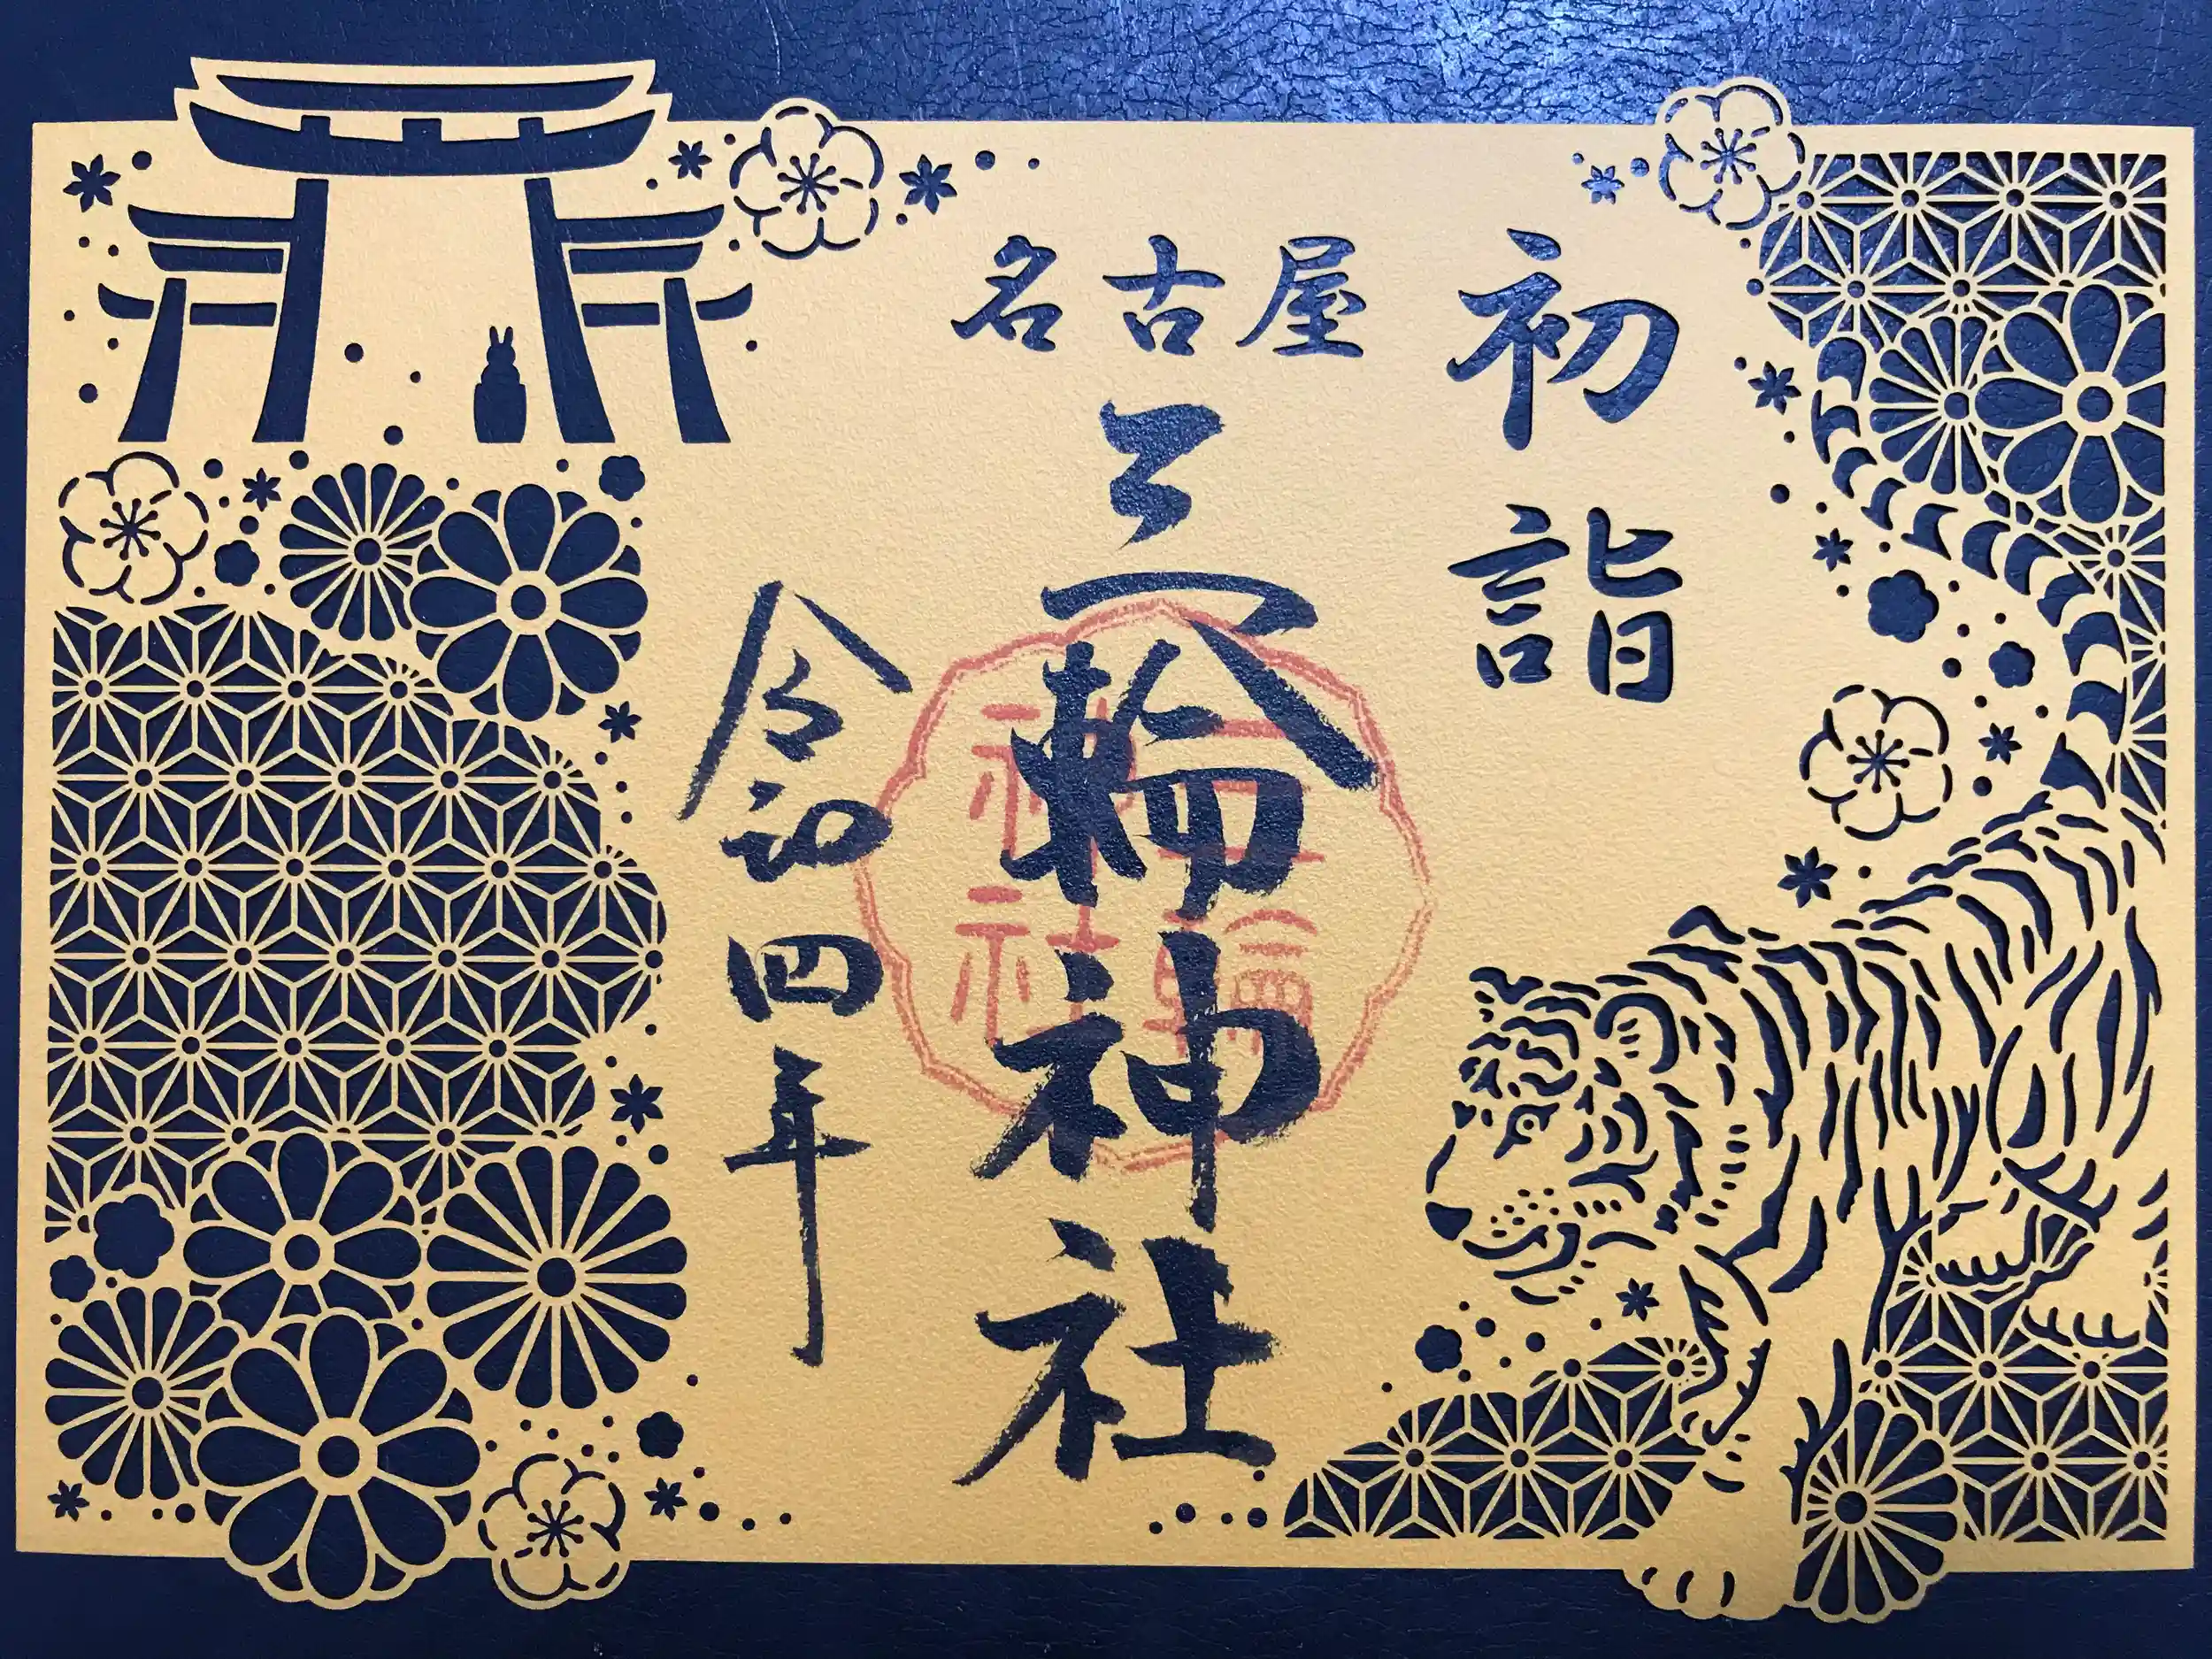 初詣
名古屋
三輪神社
三輪神社
令和四年